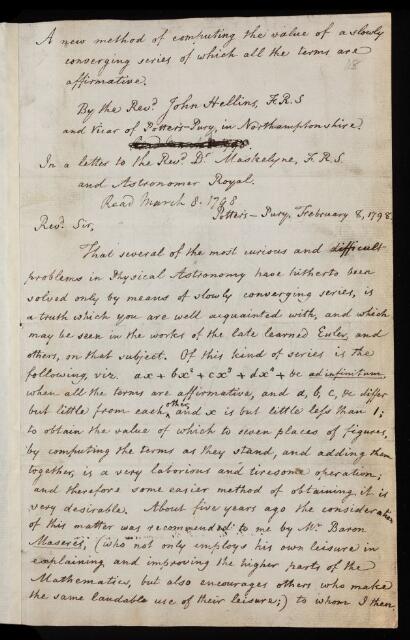 A new method of computing the value of a slowly
converging series of which all the terms are
affirmative.
18
By the Revd. John Hellins, F.R.S
and Vicar of Potters-Pury, in Northamptonshire.
In a letter to the Revd. Dr. Maskelyne, F.R.S.
and Astronomer Royal.
Read March 8. 1798
Potters-Pury, February 8, 1798.
Revd. Sir,
That several of the most curious and difficult
problems in Physical Astronomy have hitherto been
solved only by means of slowly converging series, is
a truth which you are well acquainted with, and which
may be seen in the works of the late learned Euler, and
others, on that subject. Of this kind of series is the
following, viz. ax + bx² + cx³ + dx⁴ + &c ad infinitum,
when all the terms are affirmative, and a, b, c, &c differ
but little from each other, and x is but little less than 1;
to obtain the value of which to seven places of figures,
by computing the terms as they stand, and adding them
together, is a very laborious and tiresome operation;
and therefore some easier method of obtaining it is
very desirable. About five years ago the consideration
of this matter was recommended to me by Mr. Baron
Maseres, (who not only employs his own leisure in
explaining and improving the higher parts of the
Mathematics, but also encourages others who make
the same laudable use of their leisure;) to whom I then